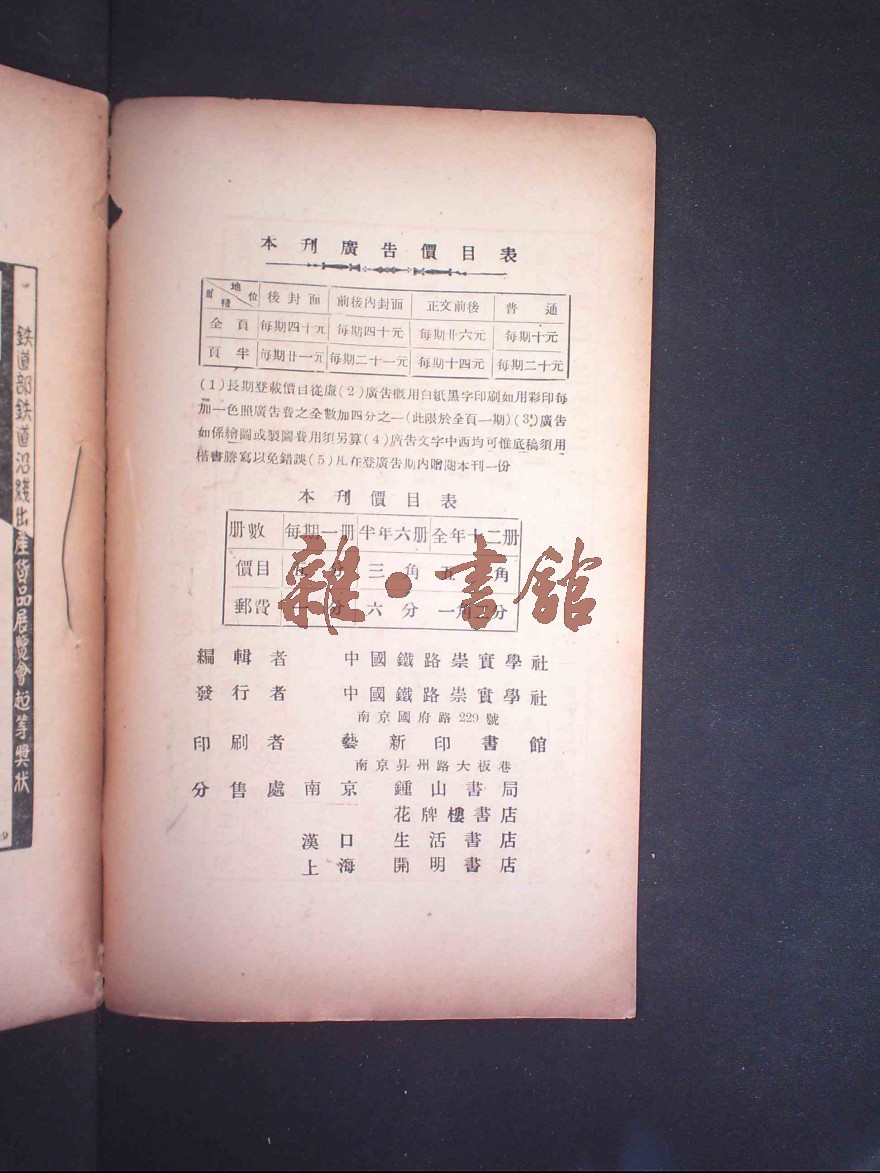 本刊廣告價目表
地位 面積 後封面 前後內封面 正文前後 普通
全頁 每期四十元 每期四十元 每期廿六元 每期十元
頁半 每期廿一元 每期二十一元 每期十四元 每期二十元
(1)長期登載價目從廉(2)廣告概用白紙黑字印刷如用彩印每
加一色照廣告費之全數加四分之一(此限於全頁一期)(3)廣告
如係繪圖或製圖費用須另算(4)廣告文字中西均可惟底稿須用
楷書謄寫以免錯誤(5)凡在登廣告期內贈閱本刊一份
本刊價目表
册數 每期一册 半年六册 全年十二册
價目 分 三角 五 角
郵費 一分 六分 一角二分
雜·書館
編輯者 中國鐵路崇實學社
發行者 中國鐵路崇實學社
南京國府路229號
印刷者 藝新印書館
南京昇州路大板巷
分售處 南京 鍾山書局
花牌樓書店
漢口 生活書店
上海 開明書店
鉄道部鉄道沿綫出產貨品展覽會超等獎狀